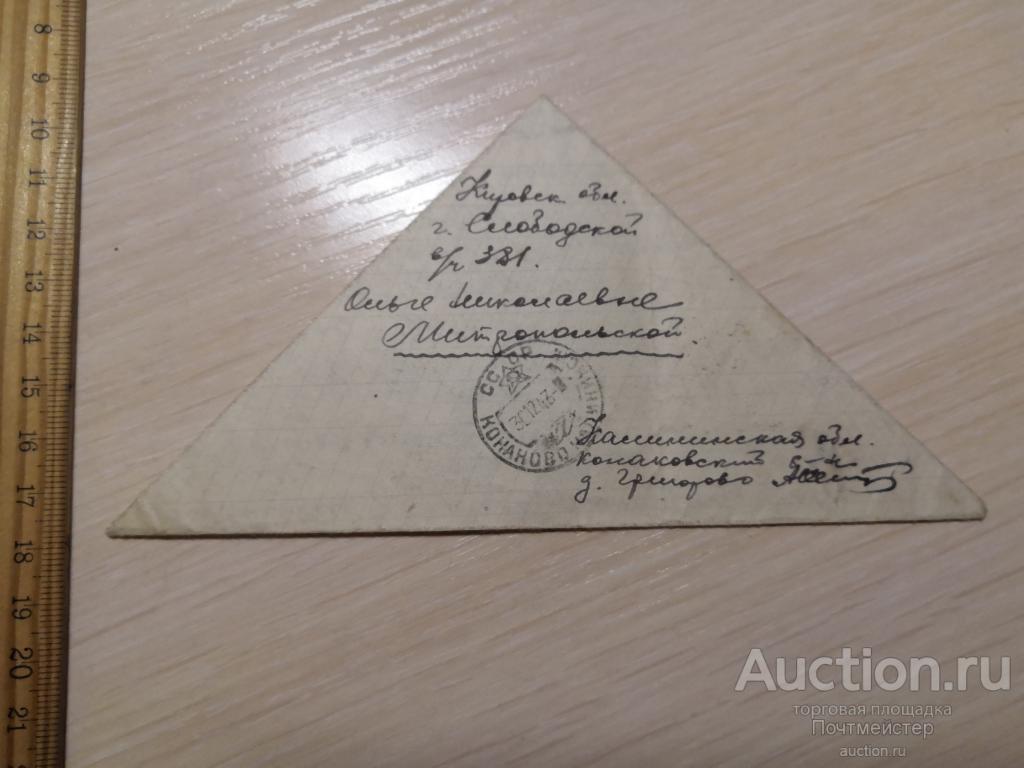 8
9
10
11
12
13
14
15
16
17
18
19
20
21
Кировск обл.
г. Слободской
п/я 321.
Ольге Николаевне
Митропольской.
СССР
30.12.43
КОНАКОВО
Калининская обл.
Конаковский р-н
д. Григорово
Auction.ru
торговая площадка
Почтмейстер
auction.ru